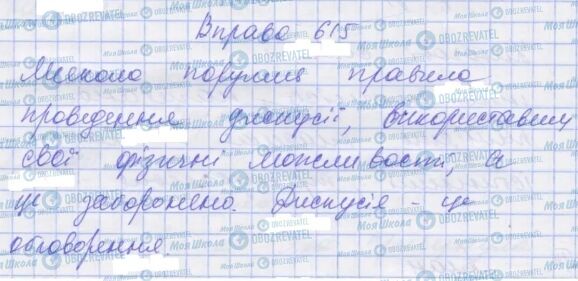 Вправа 615
Микола порушив правила
проведення дискусії, використавши
свої фізичні можливості, а
це заборонено. Дискусія - це
обговорення.